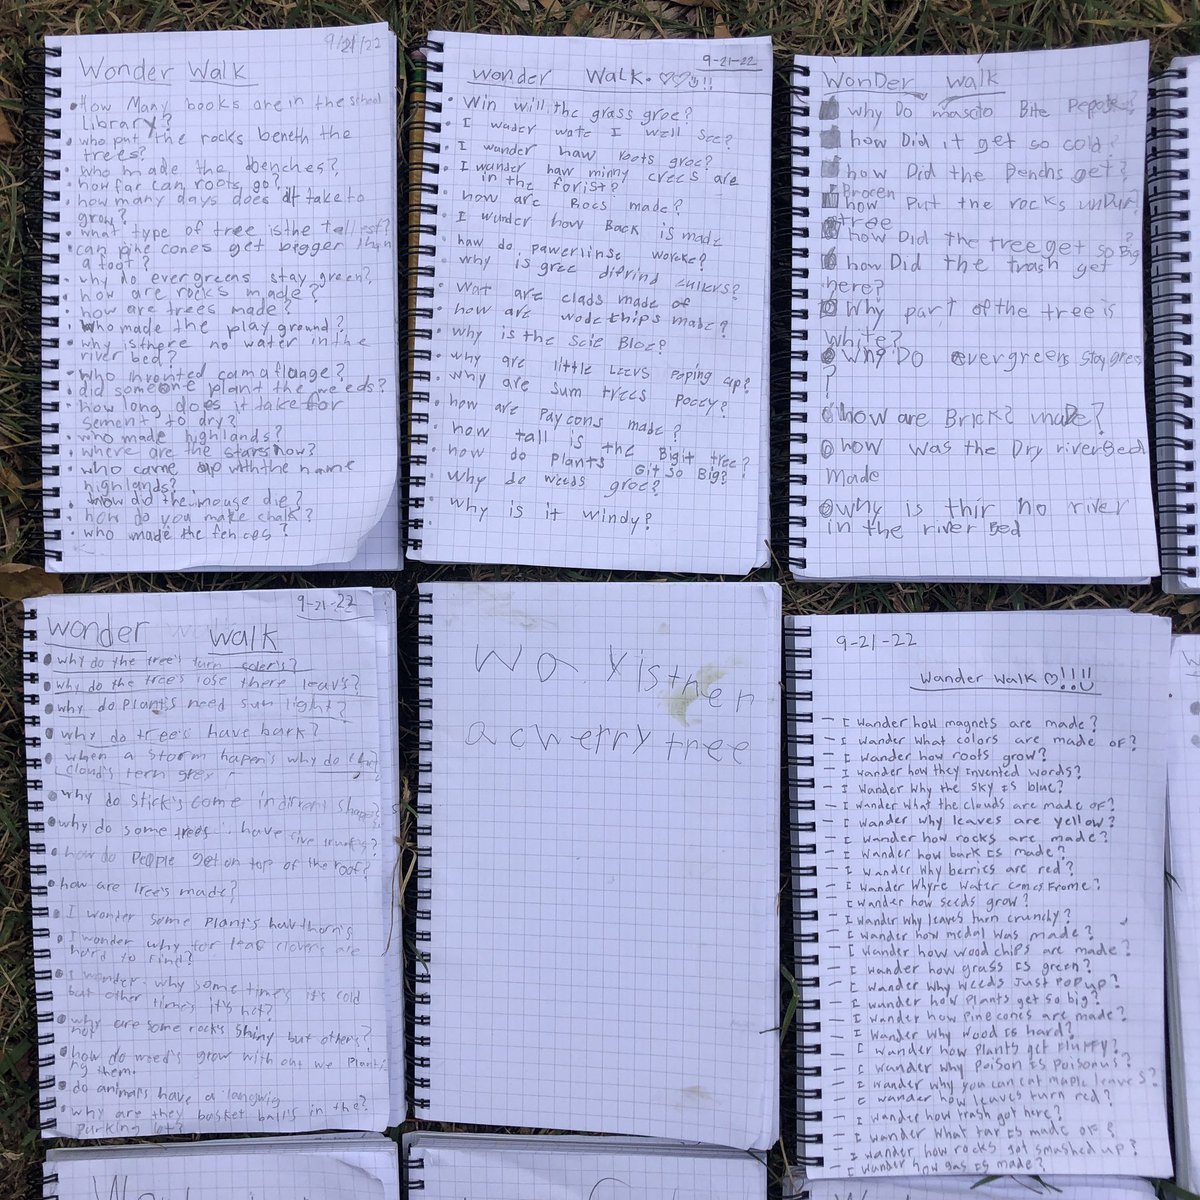 9/21/22
Wonder Walk
How Many books are in the school
library?
who put the rocks beneth the
trees?
who made the benches?
how far can roots go?
how many days does it take to
grow?
what type of tree is the tallest?
can pine cones get bigger than
a foot?
why do evergreens stay green?
how are rocks made?
how are trees made?
Who made the play ground?
why is there no water in the
river bed?
who invented camaflaage?
did someone plant the weeds?
how long does it take for
sement to dry?
who made highlands?
where are the stars now?
who came up with the name
highlands?
how did the mouse die?
how do you make chalk?
who made the fences?
9-21-22
Wonder Walk. ♡♡!!
Win will the grass groe?
I wader wate I well see?
I wander haw roots groe?
I wander haw minny crees are
in the forist?
how are Rocs made?
I wunder how Back is made
haw do pawerlinse worcke?
why is gree difrind cullers?
Wat are clads made of
how are wode thips made?
why is the scie Bloe?
why are little leevs poping up?
why are sum trees pocey?
how are paycons made?
how tall is the Bigit tree?
how do plants Git so Big?
why do weeds groe?
why is it windy?
WonDer walk
why Do mascito Bite Pepole?
how Did it get so cold?
how Did the Benchs get?
Brocen
how Put the rocks unDur?
tree
how Did the tree get so Big
how Did the trash get
here?
Why part of the tree is
white?
why Do evergreens stay gree
?
how are Bricks maDe?
how was the Dry riverBed
made
why is thir no river
in the river Bed
9-21-22
wonder walk
why do the tree's turn coler's?
why do the tree's lose there leav's?
why do Plant's need sun light?
why do tree's have bark?
when a storm hapen's why do the
cloud's tern grey
why do stick's come in difrent shapes?
why do some trees have five trunk's?
how do People get on top of the roof?
how are tree's made?
I wonder some Plant's hav thorn's
I wonder why for leaf clover's are
hard to find?
I wonder why some time's it's cold
but other time's it's hot?
why are some rock's shiny but other's?
not
how do weed's grow with out we Plant
ng them.
do animals have a langwig
why are they basket ball's in the?
parking lot?
Wa. Yis ther
a cherry tree
9-21-22
Wander Walk ♡!!
I wander how magnets are made?
I wander what colors are made of?
I wander how roots grow?
I wander how they invented words?
I wander why the sky is blue?
I wander what the clouds are made of?
I wander why leaves are yellow?
I wander how rocks are made?
I wander how bark is made?
I wander why berries are red?
I wander whyre water comes frome?
I wander how seeds grow?
I wander why leaves turn crunchy?
I wander how medal was made?
I wander how wood chips are made?
I wander how grass is green?
I wander why weeds just pop up?
I wander how plants get so big?
I wander how pine cones are made?
I wander why wood is hard?
I wander how plants get fluffy?
I wander why poison is poisonus?
I wander why you can eat maple leaves?
I wander how leaves turn red?
I wander how trash got here?
I wander what tar is made of?
I wander how rocks got smashed up?
I wander how gas is made?